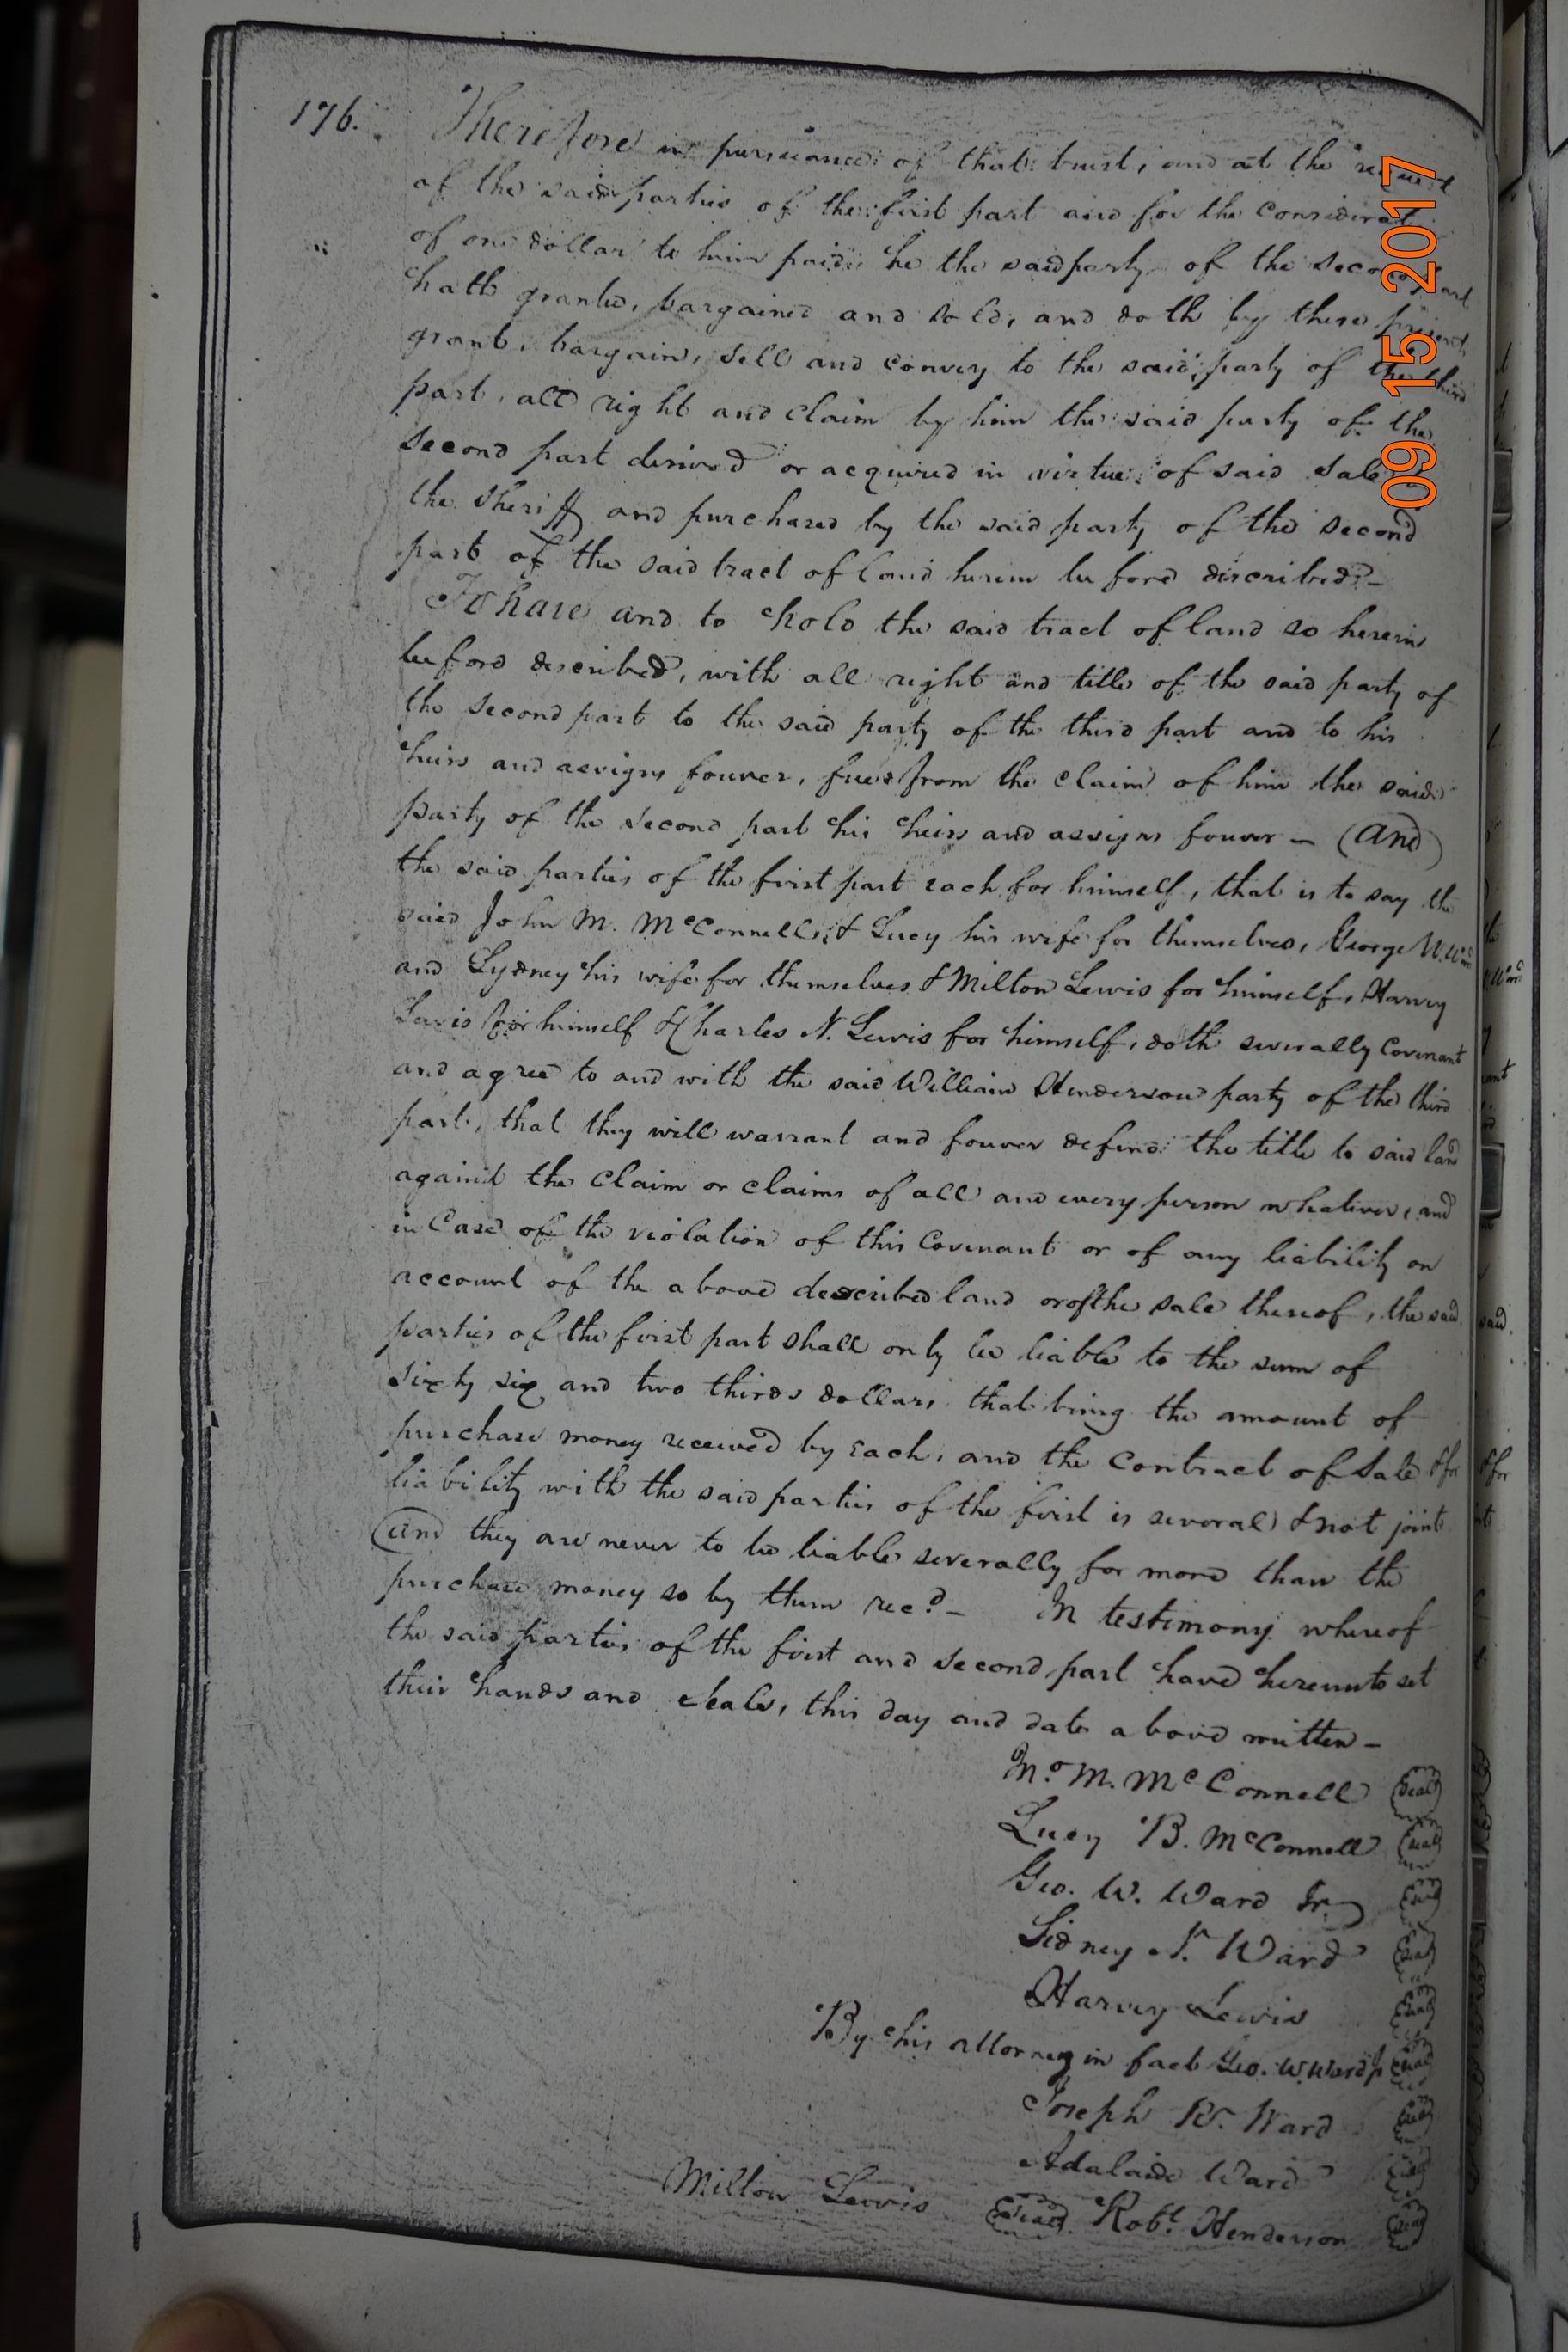 176.
Therefore in pursuance of that trust, and at the request
of the said parties of the first part and for the considerat
of one dollar to him paid, he the said party of the second part
hath granted, bargained and sold, and doth by these presents
grant, bargain, sell and convey to the said party of the third
part, all right and claim by him the said party of the
second part derived or acquired in virtue of said sale
the Sheriff and purchased by the said party of the second
part of the said tract of land herein before described -
To have and to hold the said tract of land so herein
before described, with all right and title of the said party of
the second part to the said party of the third part and to his
heirs and assigns forever, free from the claim of him the said
party of the second part his heirs and assigns forever - (And)
the said parties of the first part each for himself, that is to say the
said John M. McConnell & Lucy his wife for themselves, George W. Ward
and Sydney his wife for themselves & Milton Lewis for himself, Harvey
Lewis for himself & Charles N. Lewis for himself, doth severally covenant
and agree to and with the said William Henderson party of the third
part, that they will warrant and forever defend the title to said land
against the claim or claims of all and every person whatever, and
in Case of the violation of this Covenant or of any liability on
account of the above described land or of the sale thereof, the said
parties of the first part shall only be liable to the sum of
sixty six and two thirds dollars, that being the amount of
purchase money received by Each, and the Contract of Sale & for
liability with the said parties of the first is several & not joint
(and they are never to be liable severally for more than the
purchase money so by them recd - In testimony whereof
the said parties of the first and second part have hereunto set
their hands and seals, this day and date above written -
Jno M. McConnell Seal
Lucy B. McConnell Seal
Geo. W. Ward Jr Seal
Sidney N. Ward Seal
Harvey Lewis Seal
By his attorney in fact Geo. W. Ward Jr Seal
Joseph W. Ward Seal
Adalaide Ward Seal
Milton Lewis Seal Robt Henderson Seal
09 15 2017